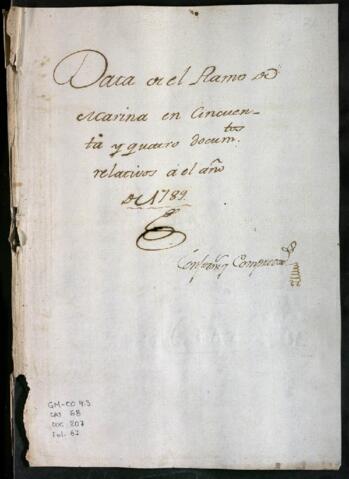 Data de el Ramo de
Marina en Cincuen-
ta y quatro docum.tos
relativos á el año
de 1789
GM-CO 4.3
CAJ 68
DOC 807
Fol. 82